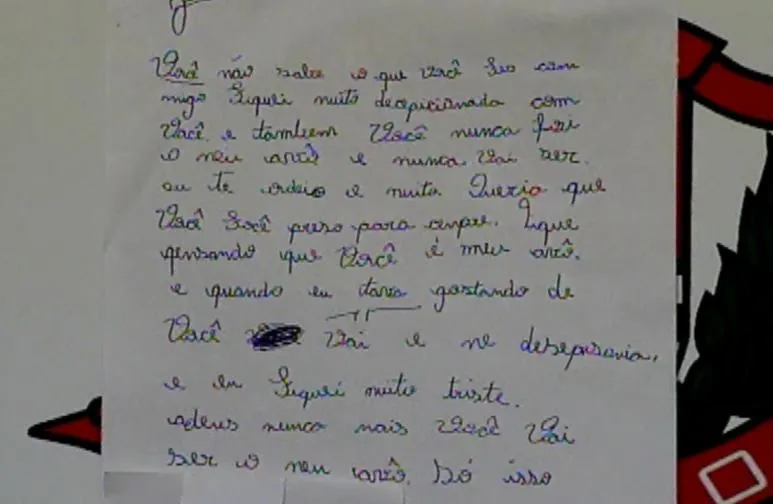 Você não sabe o que você feis com
migo Fiquei muito decepicionada com
Você. e tambem Você nunca foi
o meu avô e nunca vai ser.
eu te odeio e muito Queria que
Você Socê preso para cenpre. Fique
pensando que Você é meu avô.
e quando eu tava gostando de
Você vai e me desepisonia.
e eu Fiquei muito triste.
adeus nunca mais Você Vai
ser o meu avô. Só isso